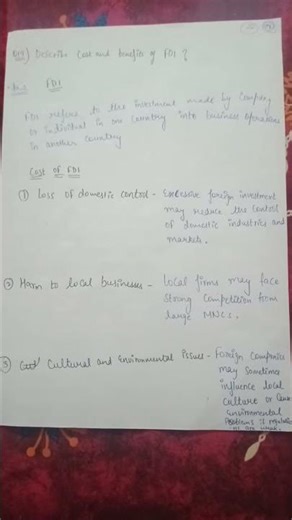 Describe cost and benefits of FDI ?
Ans FDI
FDI refers to the investment made by company
or individual in one country into business operations
in another country
Cost of FDI
① Loss of domestic control - Excessive foreign investment
may reduce the control
of domestic industries and
markets.
② Harm to local businesses - Local firms may face
strong competition from
large MNCs.
③ Cultural and environmental issues - Foreign companies
may sometimes
influence local
culture or cause
environmental
problems if regulations
are weak.